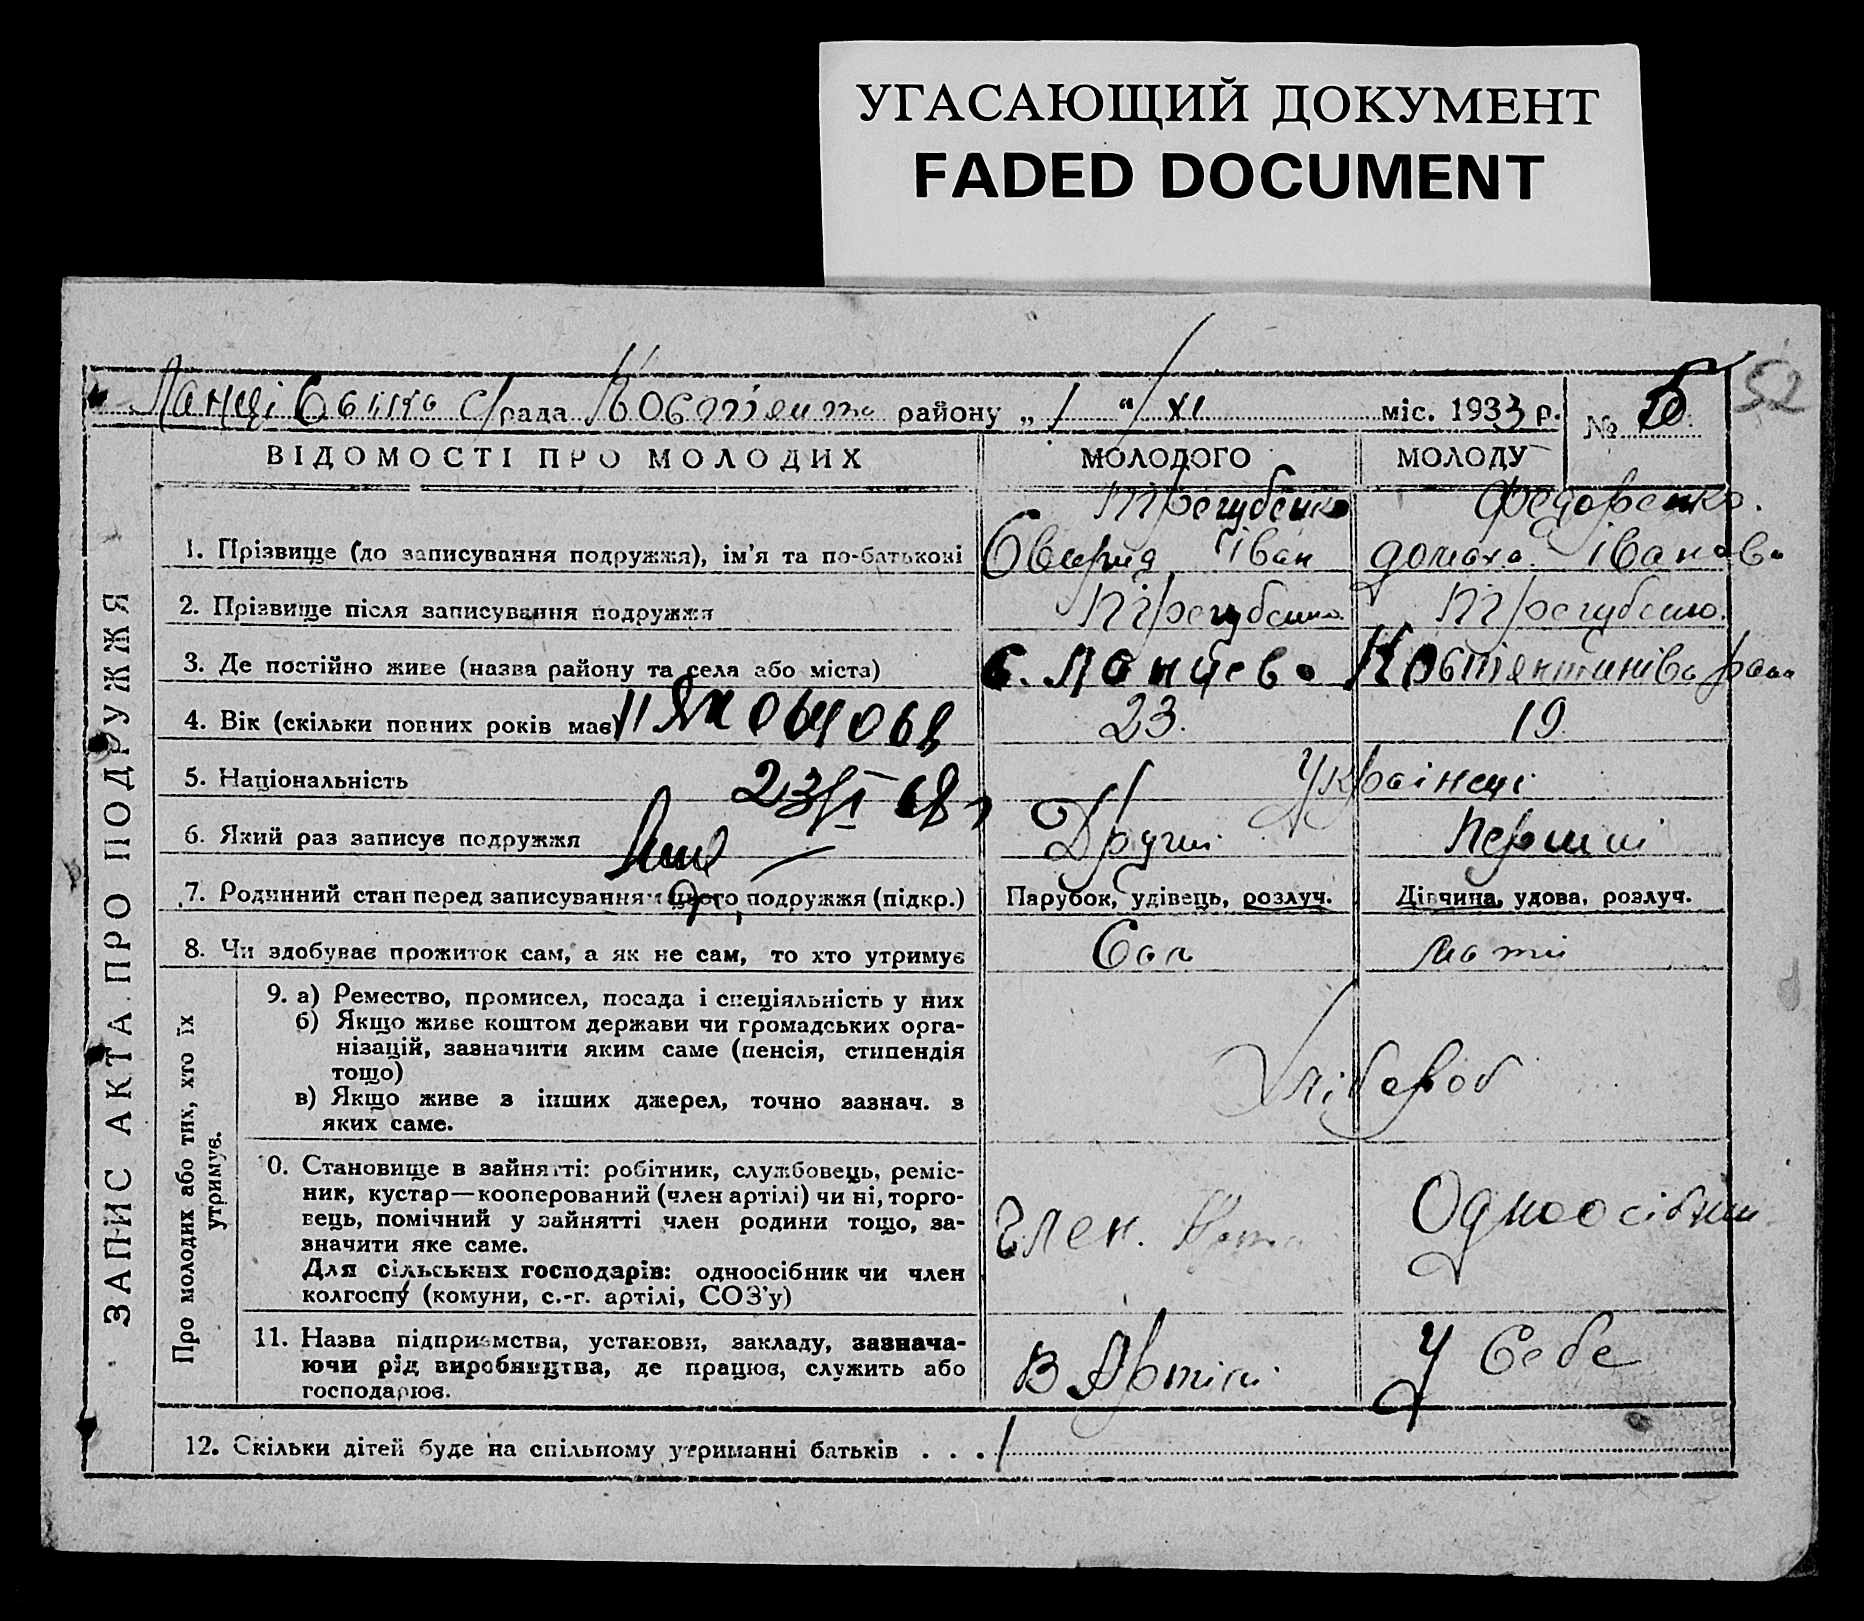 УГАСАЮЩИЙ ДОКУМЕНТ
FADED DOCUMENT
52
с/рада району „ 1 “ XI міс. 1933 р. №
ВІДОМОСТІ ПРО МОЛОДИХ МОЛОДОГО МОЛОДУ
Трегубенко Федоренко.
1. Прізвище (до записування подружжя), ім’я та по-батькові Іван
2. Прізвище після записування подружжя Трегубенко Трегубенко.
3. Де постійно живе (назва району та села або міста) с.
4. Вік (скільки повних років має) II ЯК 064068 23. 19.
5. Національність 23/I Українці
6. Який раз записує подружжя Другий Перший
7. Родинний стан перед записуванням цього подружжя (підкр.) Парубок, удівець, розлуч. Дівчина, удова, розлуч.
8. Чи здобуває прожиток сам, а як не сам, то хто утримує Сам мати
9. а) Ремество, промисел, посада і спеціяльність у них
б) Якщо живе коштом держави чи громадських орга-
нізацій, зазначити яким саме (пенсія, стипендія
тощо)
Хлібороб
в) Якщо живе з інших джерел, точно зазнач. з
яких саме.
10. Становище в зайнятті: робітник, службовець, реміс-
ник, кустар—кооперований (член артілі) чи ні, торго-
вець, помічний у зайнятті член родини тощо, за-
значити яке саме.
Для сільських господарів: одноосібник чи член
колгоспу (комуни, с.-г. артілі, СОЗ’у)
член. Одноосібник
11. Назва підприємства, установи, закладу, зазнача-
ючи рід виробництва, де працює, служить або
господарює.
В Артілі У Себе
12. Скільки дітей буде на спільному утриманні батьків . . . 1
ЗАПИС АКТА ПРО ПОДРУЖЖЯ
Про молодих або тих, хто їх
утримує.